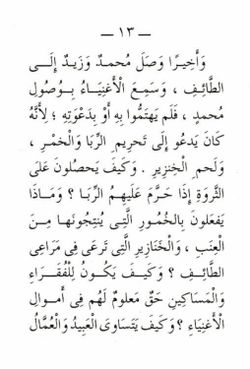 — ١٣ —
وَأَخِيرًا وَصَلَ مُحمدٌ وَزَيدٌ إِلَـى
الطَّائِفِ ، وَسَمِعَ الْأَغْنِيَاءُ بِوُصُولِ
مُحمدٍ ، فَلَم يَهتَمُّوا بِهِ أَو بِدَعْوَتِهِ ؛ لِأَنَّهُ
كَانَ يَدعُو إِلَى تَحرِيمِ الرِّبَا وَالْخَمْرِ ،
وَلَحمِ الخِنزِيرِ . وَكَيفَ يَحصُلُونَ عَلَى
الثَّروَةِ إِذَا حَرَّمَ عَلَيهِمُ الرِّبا ؟ وَمَـاذَا
يَفعَلُونَ بِالخُمُورِ الَّتِـى يُنتِجُونَهـا مِـنَ
العِنَبِ ، وَالْخَنَازِيرِ الَّتِى تَرعَى فِى مَرَاعِى
الطَّائِفِ ؟ وَكَيـفَ يَكُـونُ لِلْفُقَـرَاءِ
وَالْمَسَاكِينِ حَقٌّ مَعلُومٌ لَهُم فِى أَموالِ
الْأَغنِيَاءِ ؟ وَكَيفَ يَتَسَاوَى العَبِيدُ وَالْعُمَّالُ